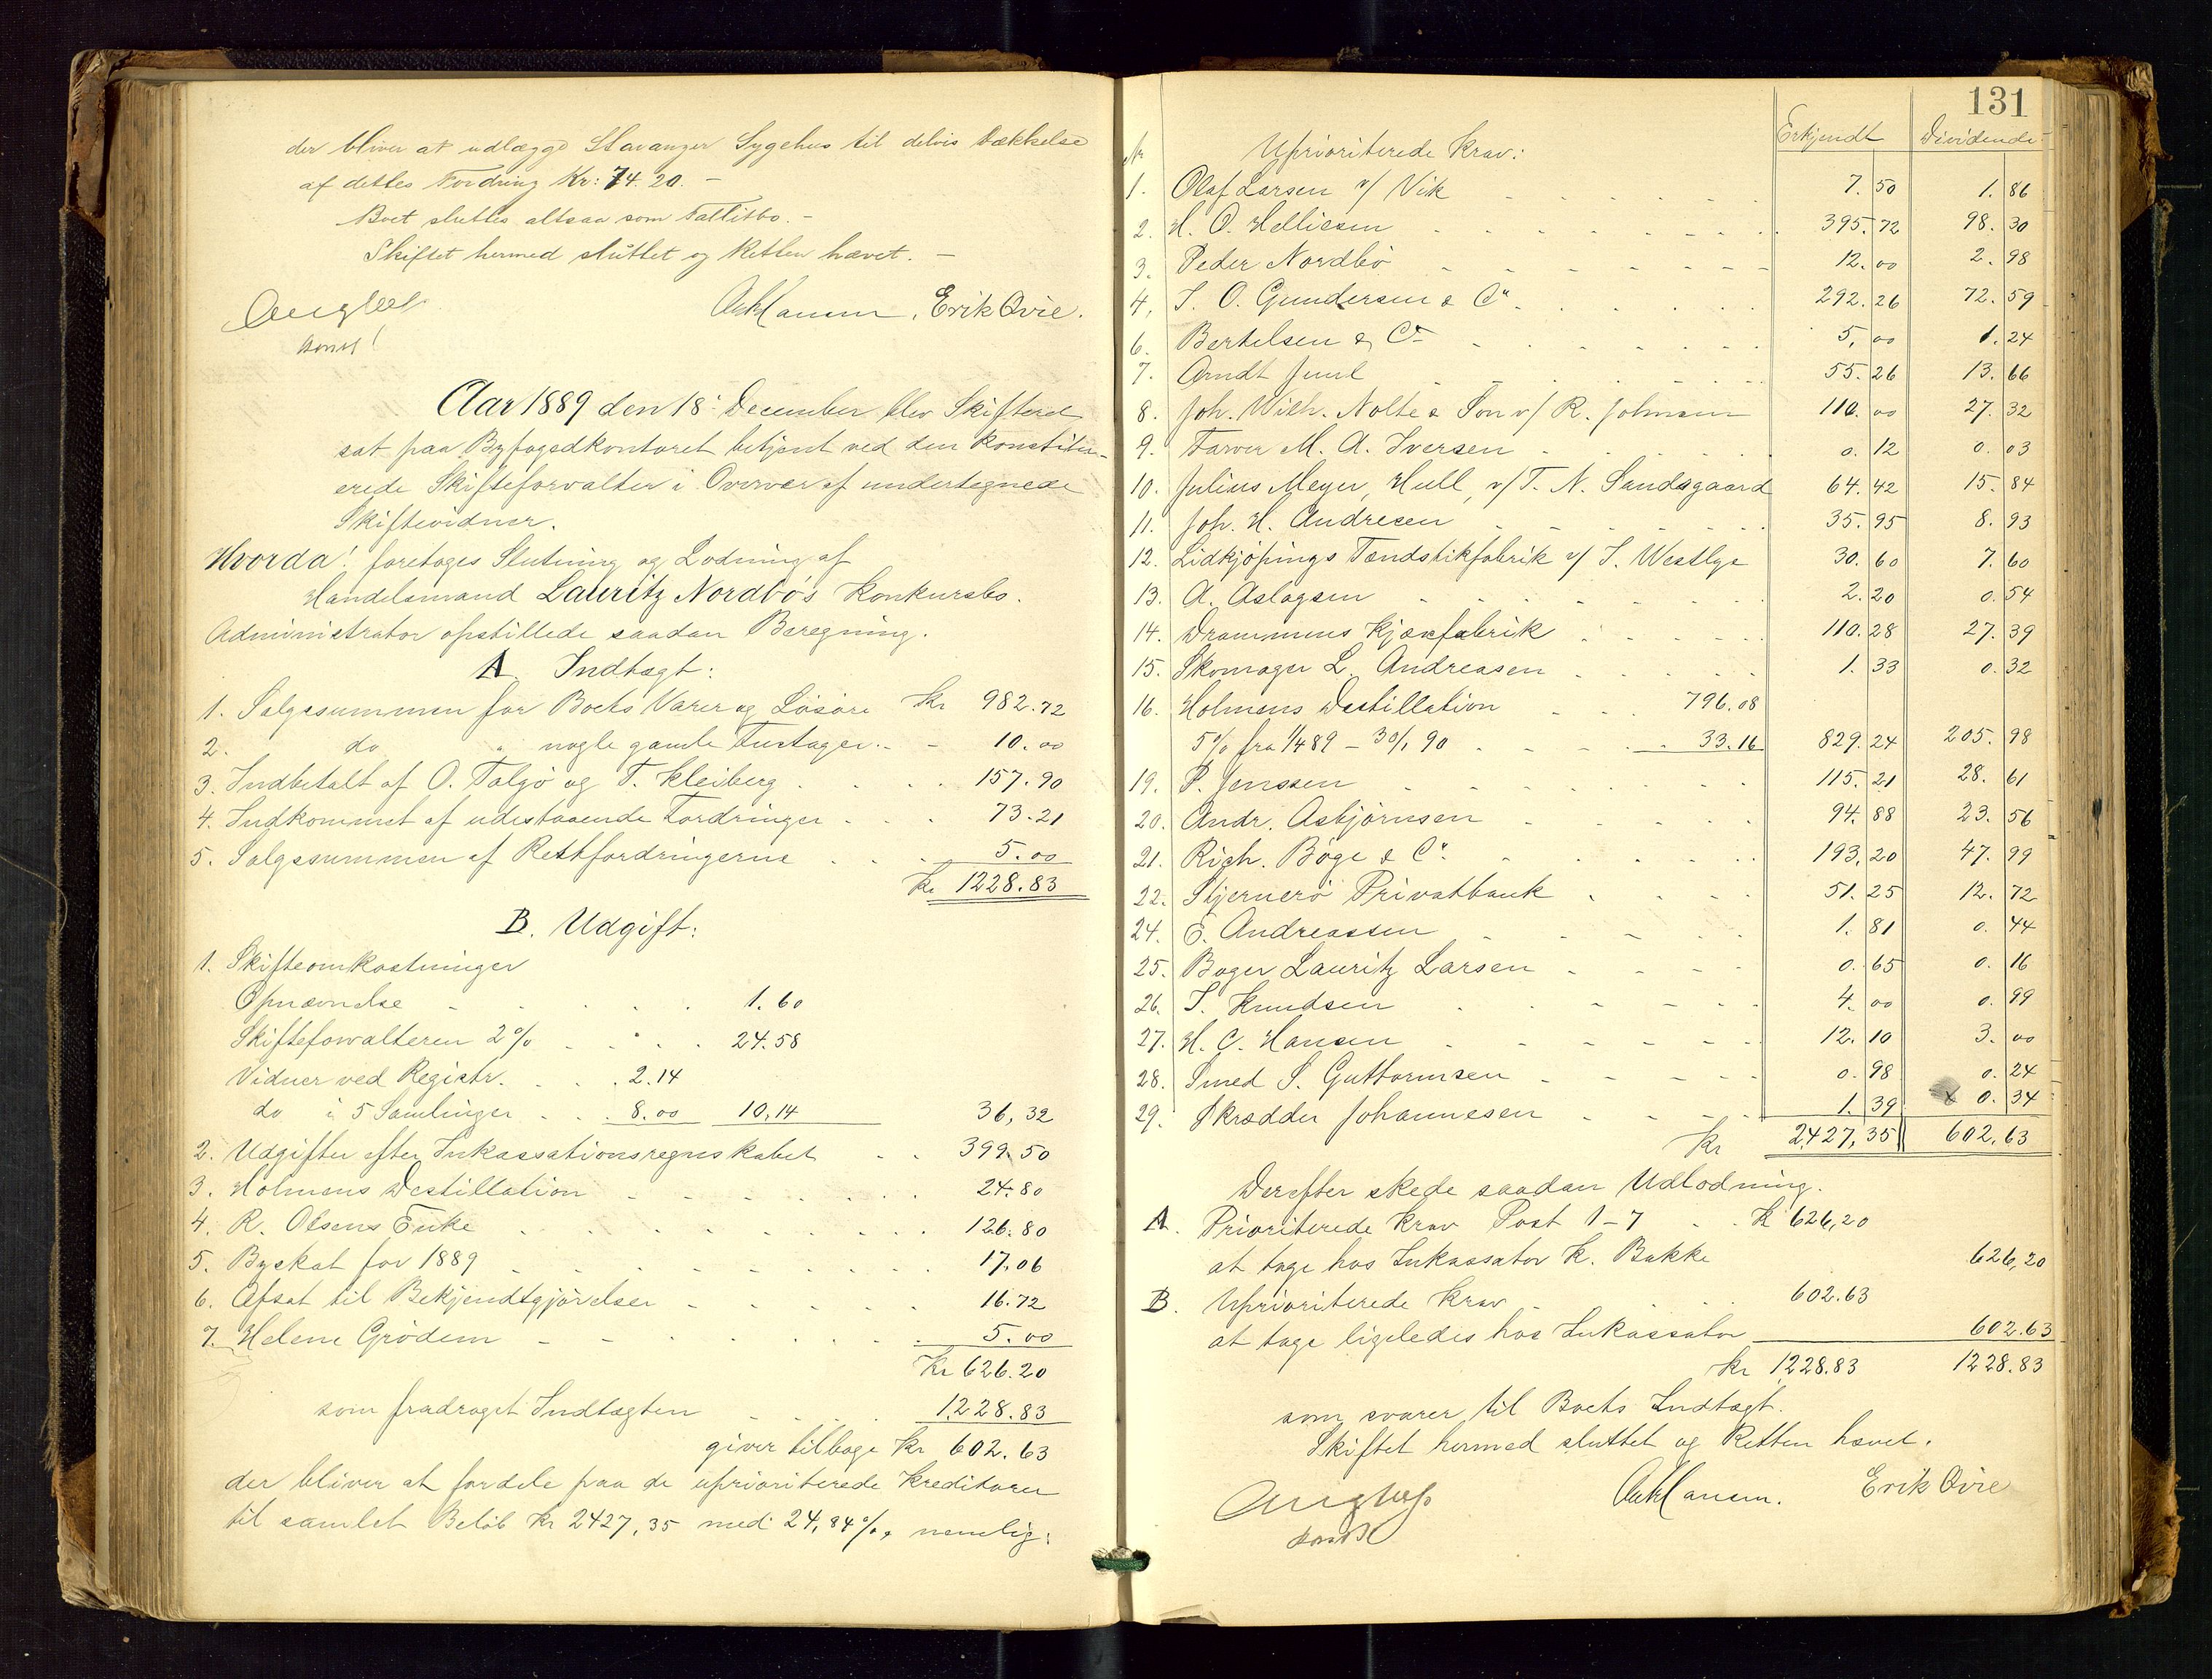 der bliver at udlægge Stavanger Sygehus til delvis Dækkelse
af dettes Fordring Kr: 74.20. –
Boet sluttes altsaa som Fallitbo. –
Skiftet hermed sluttet og Retten hævet. –
Erik Qvie.
konst!
Aar 1889 den 18' December blev Skifteret
sat paa Byfogedkontoret betjent ved den konstitu-
erede Skifteforvalter i Overvær af undertegnede
Skiftevidner.
Hvorda! foretoges Slutning og Lodning af
Handelsmand Lauritz Nordbö's Konkursbo.
Administrator opstillede saadan Beregning.
A. Indtægt:
1. Salgssummen for Boets Varer og Lösöre Kr 982.72
2. do " nogle gamle Fustager. - - 10.00
3. Indbetalt af O. Talgö og T. Kleiberg . . . . 157.90
4. Indkommet af udestaaende Fordringer . . . 73.21
5. Salgssummen af Restfordringerne . . . 5.00
Kr 1228.83
B. Udgift:
1. Skifteomkostninger
Opnævnelse - . . . . 1.60
Skifteforvalteren 2% . . . . 24.58
Vidner ved Registr. . . . 2.14
do i 5 Samlinger . . . 8.00 10,14 36,32
2. Udgifter efter Inkassationsregnskabet - . 399.50
3. Holmens Destillation - - - - . . . 24.80
4. R. Olsens Enke . . . . . . . . 126.80
5. Byskat for 1889 - - - - - - . . 17.06
6. Afsat til Bekjendtgjörelser - - - - - 16.72
7. Helene Grödem - - - . . . . 5.00
Kr 626.20
som fradraget Indtægten - - . . 1228.83
giver tilbage Kr 602.63
der bliver at fordele paa de uprioriterede Kreditorer
til samlet Belöb Kr 2427,35 med 24,84%, nemlig:
131
Nr Uprioriterede Krav: Erkjendt Dividende
1. Olaf Larsen v/ Vik - . . . . . . 7.50 1.86
2. H. O. Helliesen - - - - - - - - . 395.72 98.30
3. Peder Nordbö - - - - - - - 12.00 2.98
4. S. O. Gundersen & Co. . . . . . 292.26 72.59
6. Bertelsen & Co - . . . . . . 5,00 1.24
7. Arndt Juul - - . . . . . 55.26 13.66
8. Joh. Wilh. Nolte & Son v/ R. Johnsen 110.00 27.32
9. Farver M. A. Iversen - . . . . . 0.12 0.03
10. Julius Meyer, Hull, v/ T. N. Sandsgaard 64.42 15.84
11. Joh. H. Andresen - - - . . . . 35.95 8.93
12. Lidkjöpings Tændstikfabrik v/ S. Westlye 30.60 7.60
13. A. Aslagsen - - - - - - . 2.20 0.54
14. Drammens Kjæxfabrik . . . . . 110.28 27.39
15. Skomager L. Andreasen . . . . . 1.33 0.32
16. Holmens Destillation - - . 796.08
5% fra 1/4 89 – 30/1 90 . . . . . 33.16 829.24 205.98
19. P. Jenssen - - - - - - - . 115.21 28.61
20. Andr. Asbjörnsen - . . . . . 94.88 23.56
21. Rich. Böge & Co. - . . . . . 193.20 47.99
22. Stjernerö Privatbank . . . . 51.25 12.72
24. E. Andreassen - - - - . 1.81 0.44
25. Bager Lauritz Larsen - - - - 0.65 0.16
26. S. Knudsen . . - - - - 4.00 0.99
27. H. C. Hansen - - - - - - - 12.10 3.00
28. Smed S. Guttormsen - - - - - 0.98 0.24
29. Skrædder Johannesen - - - - 1.39 x 0.34
Kr 2427,35 602.63
Derefter skede saadan Udlodning.
A. Prioriterede Krav Post 1–7 . . K 626,20
at tage hos Inkassator K. Bakke 626,20
B. Uprioriterede Krav - . . . . 602.63
at tage ligeledes hos Inkassator 602.63
Kr 1228.83 1228.83
som svarer til Boets Indtægt.
Skiftet hermed sluttet og Retten hævet.
Erik Qvie
konst